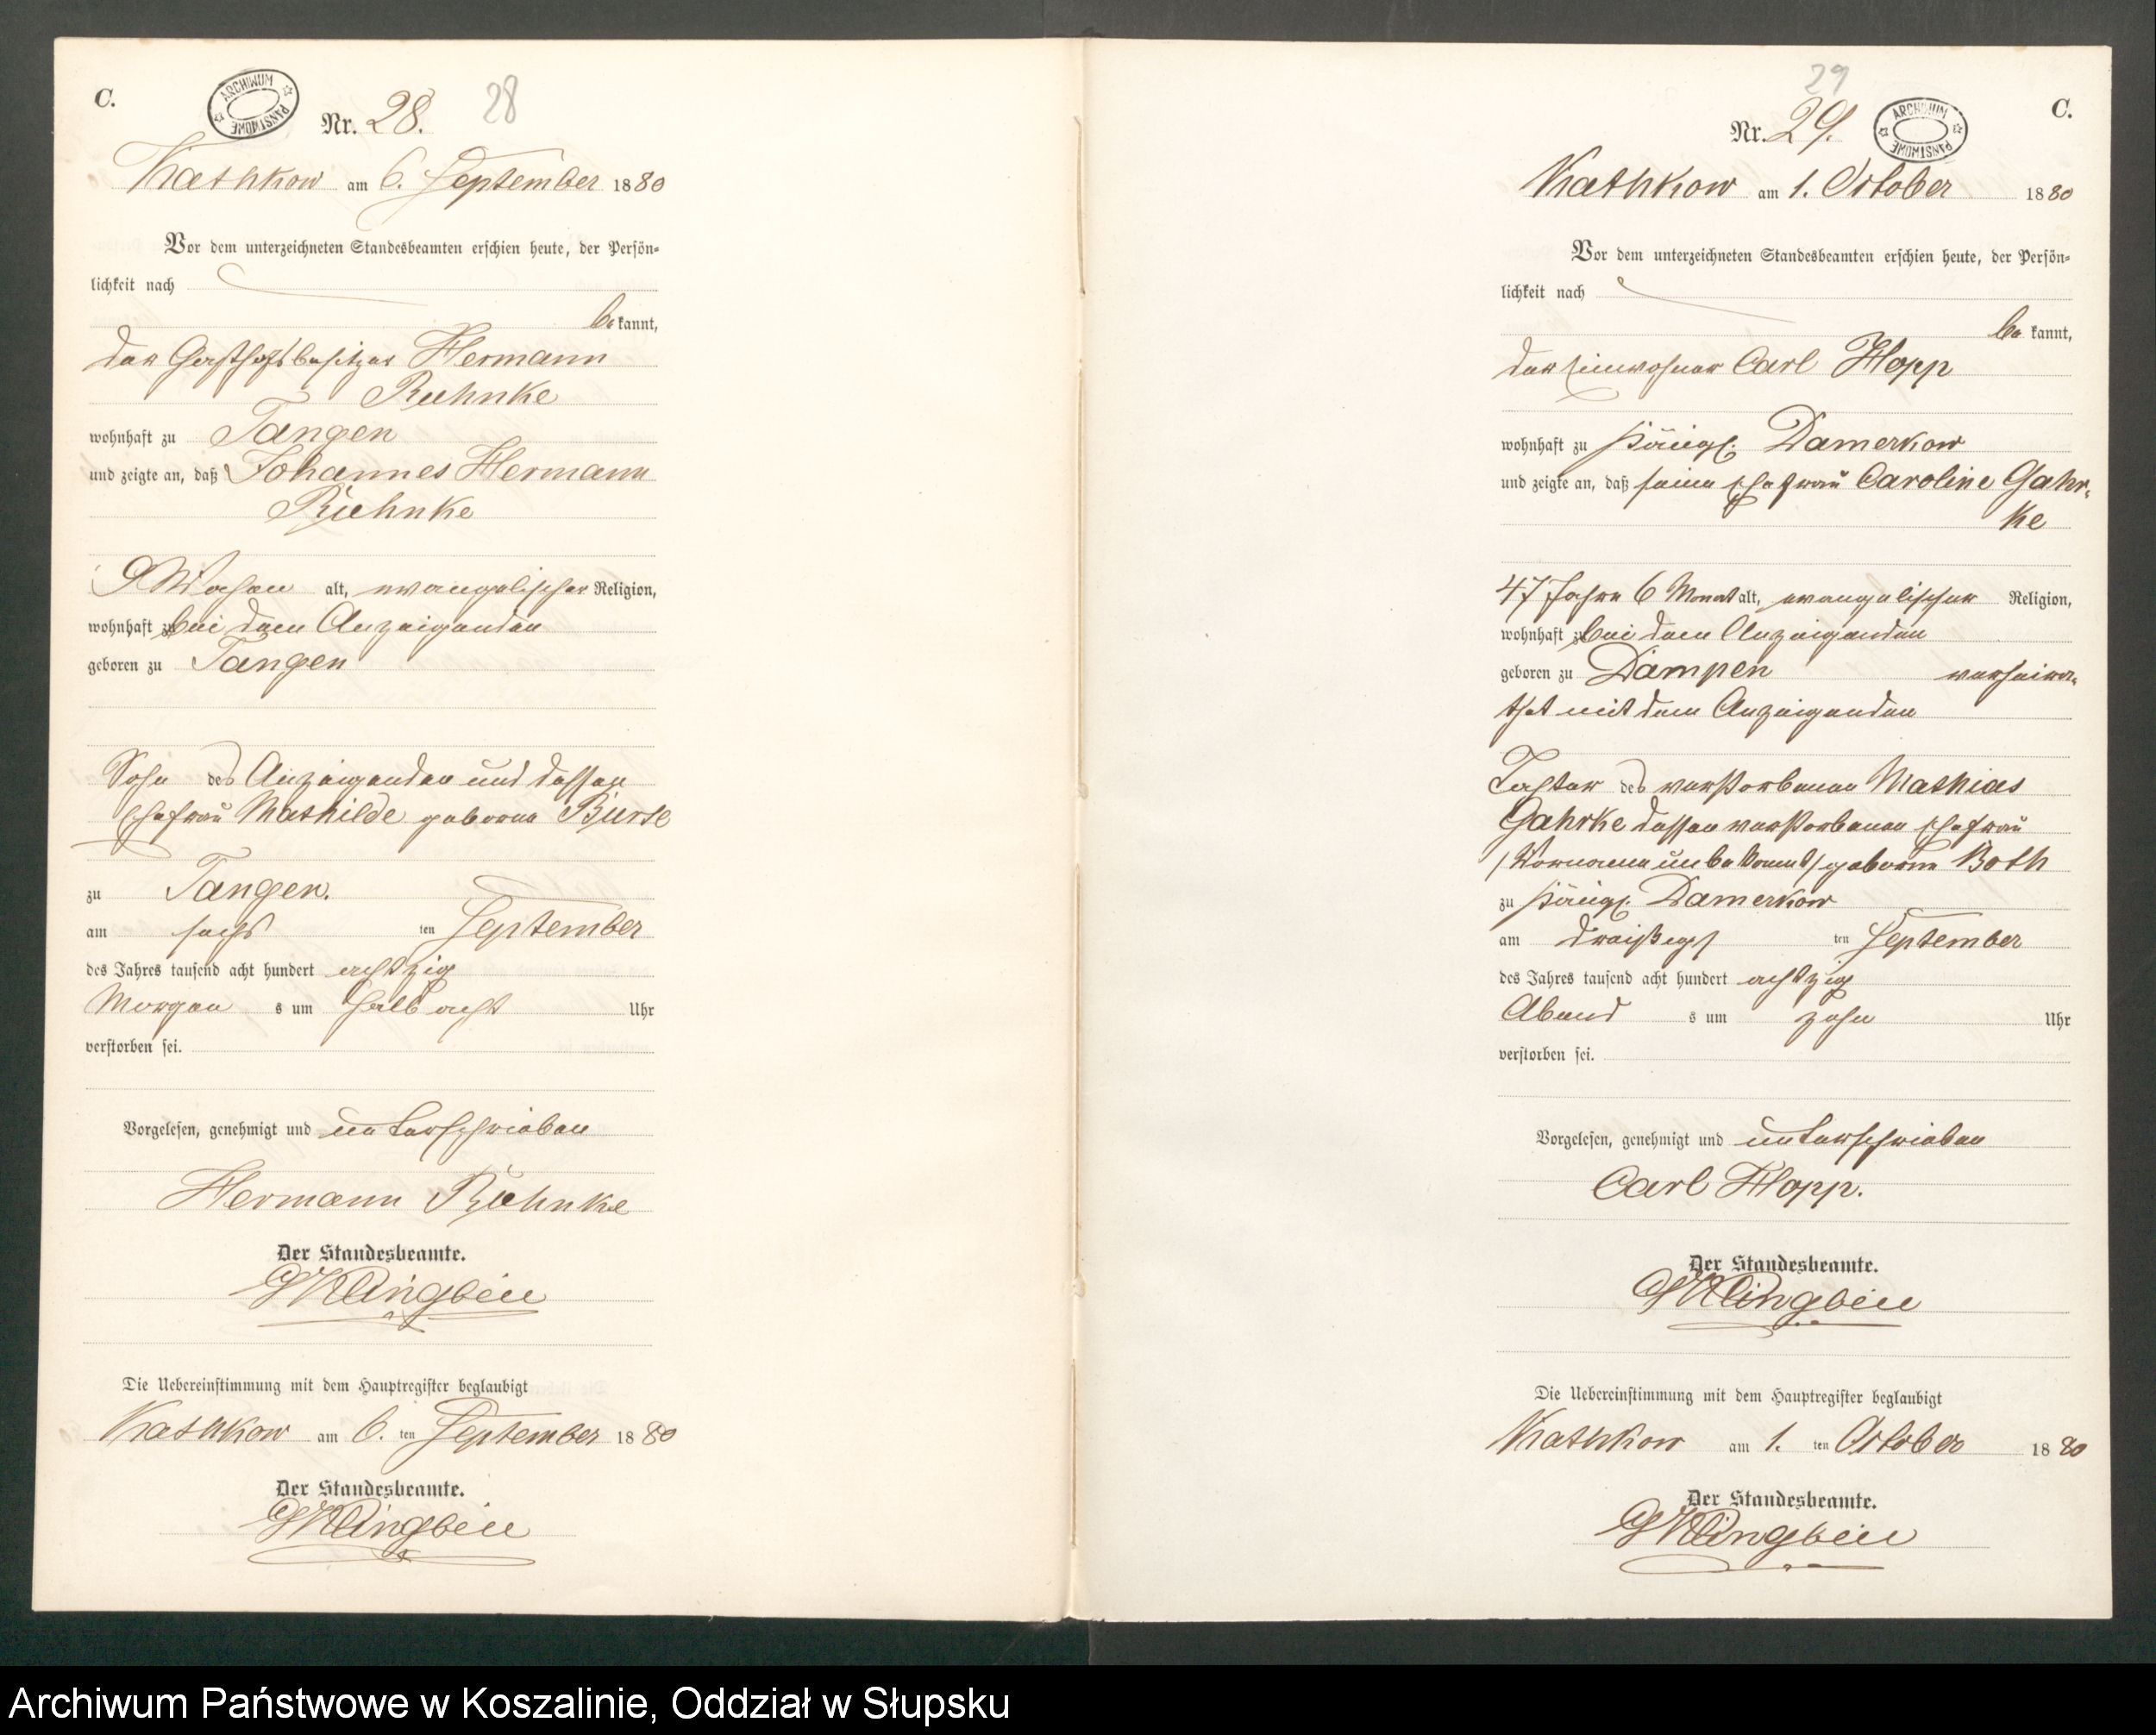 C.
ARCHIWUM PAŃSTWOWE
Nr. 28.
28
Kathkow am 6. September 1880
Vor dem unterzeichneten Standesbeamten erschien heute, der Persön-
lichkeit nach
bekannt,
der Gasthofsbesitzer Hermann
Ruhnke
wohnhaft zu Tangen
und zeigte an, daß Johannes Hermann
Ruhnke
9 Wochen alt, evangelischer Religion,
wohnhaft zu bei dem Anzeigenden
geboren zu Tangen
Sohn des Anzeigenden und dessen
Ehefrau Mathilde geborne
zu Tangen.
am sechs ten September
des Jahres tausend acht hundert achtzig
Morgen s um halb acht Uhr
verstorben sei.
Vorgelesen, genehmigt und unterschrieben
Hermann Ruhnke
Der Standesbeamte.
Klingbeil
Die Uebereinstimmung mit dem Hauptregister beglaubigt
Kathkow am 6. ten September 1880
Der Standesbeamte.
Klingbeil
29
Nr. 29.
ARCHIWUM PAŃSTWOWE
C.
Kathkow am 1. October 1880
Vor dem unterzeichneten Standesbeamten erschien heute, der Persön-
lichkeit nach
be kannt,
der Einwohner Carl Hopp
wohnhaft zu Königl. Damerkow
und zeigte an, daß seine Ehefrau Caroline Gahr-
ke
47 Jahre 6 Monat alt, evangelischer Religion,
wohnhaft zu bei dem Anzeigenden
geboren zu Dampen verheira-
thet mit dem Anzeigenden
Tochter des verstorbenen Mathias
Gahrke dessen verstorbenen Ehefrau
/Vorname unbekannt/ geborne Both
zu Königl. Damerkow
am dreißigst ten September
des Jahres tausend acht hundert achtzig
Abend s um zehn Uhr
verstorben sei.
Vorgelesen, genehmigt und unterschrieben
Carl Hopp.
Der Standesbeamte.
Klingbeil
Die Uebereinstimmung mit dem Hauptregister beglaubigt
Kathkow am 1. ten October 1880
Der Standesbeamte.
Klingbeil
Archiwum Państwowe w Koszalinie, Oddział w Słupsku